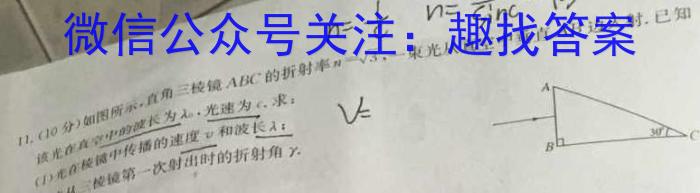 微信公众号关注：趣找答案
n=
n=
sinc
11.(10分)如图所示,直角三棱镜ABC的折射率n=√3,一束光从 射.已知
该光在真空中的波长为λ₀,光速为c.求:
(1)光在棱镜中传播的速度v和波长λ;
三棱镜第一次射出时的折射角γ.
V=
A
B
30°
C